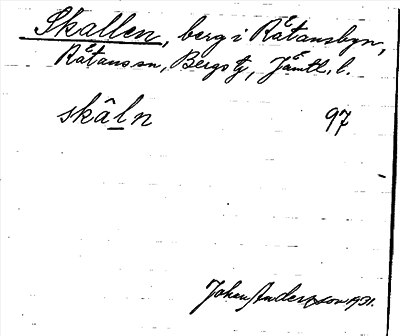 Skallen, berg i Råtansbyn,
Råtans sn, Bergs tg, Jämtl. l.
skâl̲n 97
Johan Andersson 1931.